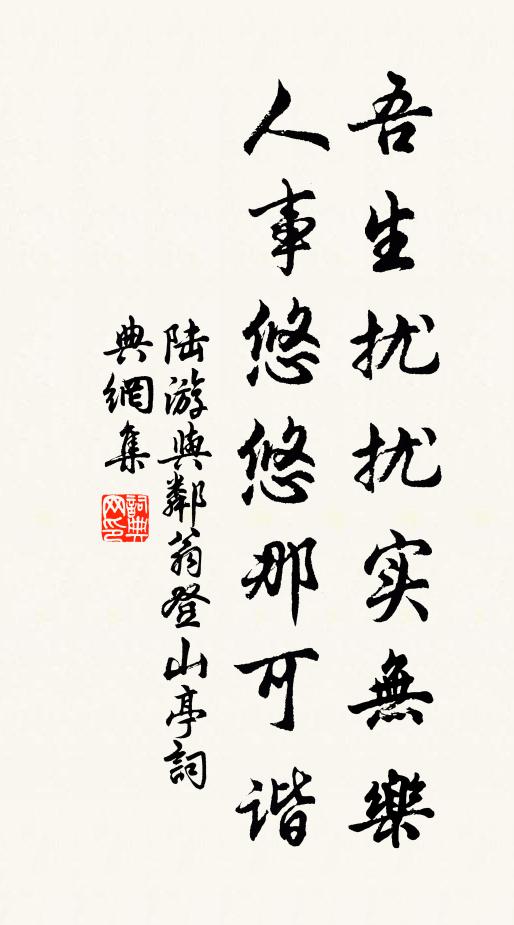 吾生扰扰实無樂
人事悠悠那可谐
陆游與鄰翁登山亭詞
典網集
詞典
网印